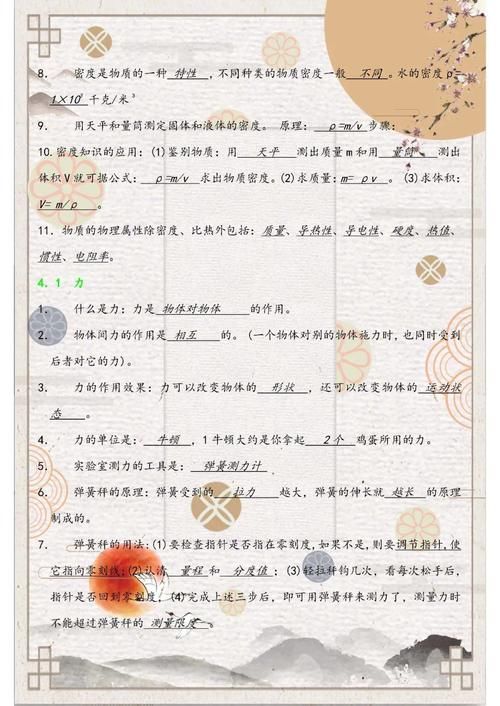 8. 密度是物质的一种 特性 ,不同种类的物质密度一般 不同。水的密度ρ=
1×10³千克/米³
9. 用天平和量筒测定固体和液体的密度。 原理: ρ=m/v 步骤:
10.密度知识的应用:(1)鉴别物质:用 天平 测出质量m和用 量筒 测出
体积V就可据公式: ρ=m/v 求出物质密度。(2)求质量:m= ρv 。(3)求体积:
V= m/ρ 。
11. 物质的物理属性除密度、比热外包括:质量、导热性、导电性、硬度、热值、
惯性、电阻率。
4.1 力
1. 什么是力:力是 物体对物体 的作用。
2. 物体间力的作用是 相互 的。(一个物体对别的物体施力时,也同时受到
后者对它的力)。
3. 力的作用效果:力可以改变物体的 形状 ,还可以改变物体的 运动状
态 。
4. 力的单位是: 牛顿 ,1牛顿大约是你拿起 2个 鸡蛋所用的力。
5. 实验室测力的工具是: 弹簧测力计
6. 弹簧秤的原理:弹簧受到的 拉力 越大,弹簧的伸长就 越长 的原理
制成的。
7. 弹簧秤的用法:(1)要检查指针是否指在零刻度,如果不是,则要调节指针,使
它指向零刻线;(2)认清 量程和 分度值 ;(3)轻拉秤钩几次,看每次松手后,
指针是否回到零刻度,(4)完成上述三步后,即可用弹簧秤来测力了,测量力时
不能超过弹簧秤的 测量限度 。